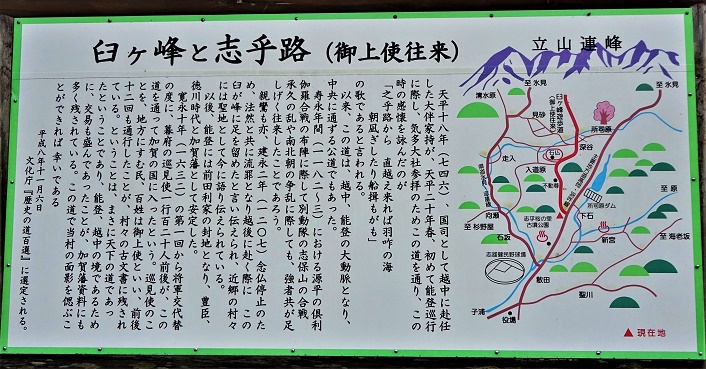 臼ヶ峰と志乎路（御上使往来）
天平十八年（七四六）、国司として越中に赴任
した大伴家持が、天平二十年春、初めて能登巡行
に際し、気多大社参拝のためこの道を通り、この
時の感懐を詠んだのが
「之乎路から　直越え来れば羽咋の海
朝凪ぎしたり船揖もがも」
の歌であると言われる。
以来、この道は、越中、能登の大動脈となり、
中央に通ずる公道でもあった。
寿永年間（一一八二〜三）における源平の倶利
伽羅合戦の布陣に際して別動隊の志保山の合戦、
承久の乱や南北朝の争乱に際しても、強者共が足
しげく往来したことであろう。
親鸞も亦、建永二年（一二〇七）念仏停止のた
め、法然と共に流罪となり越後に赴く際に　この
臼が峰に足を留めたと言い伝えられ、近郷の村々
には聖地として今に語り伝えられている。
以後、能登には前田利家の封地となり、豊臣、
徳川時代と加賀藩として安定した。
寛永十年（一六三三）の第一回から将軍交代替
の度に、幕府の巡見使一行百二十人前後が、この
道を通って加賀の国に入ったという。巡見使のこ
とを、地方にすむ民、百姓は御上使といい、前後
十二回も通行したことが、村々の古文書に残され
ている。ということは、まさに天下の道であっ
たということであり、能登、越中の境であるため
に、交易も盛んであった。ことが、加賀藩資料にも
多く残されている。この道で当村の面影を偲ぶこ
とができれば幸いである
平成八年十一月六日
文化庁『歴史の道百選』に選定される。
立山連峰
至氷見
至氷見
溝水原
臼ヶ峰遊歩道
（御上使往来）
見砂
所司原
深谷
走入
入道原
不動尊
所司原ダム
至原
向瀬
志乎桜の里
古墳公園
下石
至杉野屋
石坂
新宮
至海老坂
志雄運動公園野球場
散田
聖川
子浦
役場
▲現在地